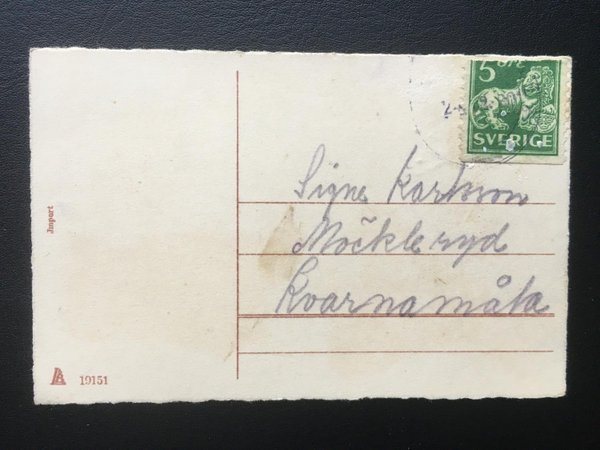 5 ÖRE
SVERIGE
Signe Karlsson
Möckleryd
Kvarnamåla
Import
19151